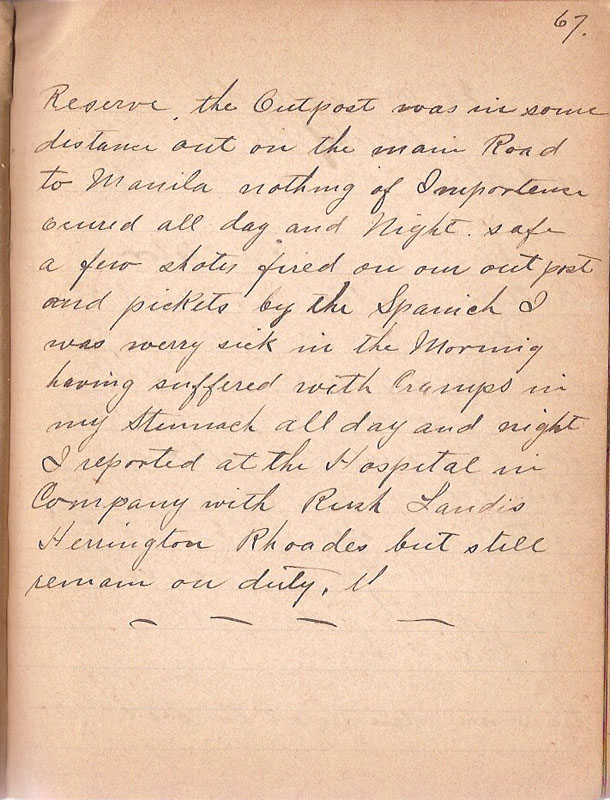 67.
Reserve, the Outpost was in some
distance out on the main Road
to Manila nothing of Importence
ocured all day and Night. safe
a few shots fired on our outpost
and pickets by the Spanich I
was werry sick in the Morning
having suffered with Cramps in
my Stumach all day and night
I reported at the Hospital in
Company with Rush Landis
Herrington Rhoades but still
remain on duty.